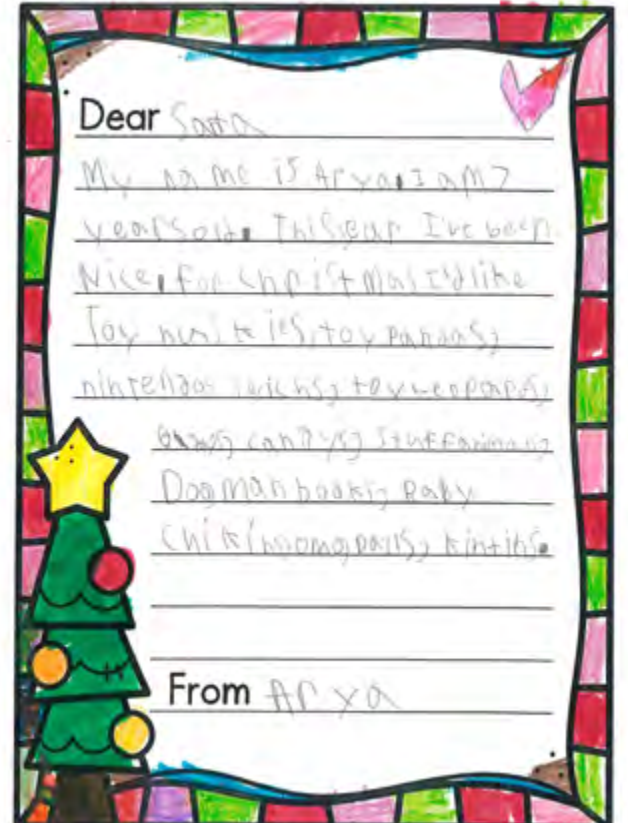 Dear Santa
My name is Arya. I am 7
years old. This year I've been
Nice. For christmas I'd like
Toy huskies, toy pandas,
nintendos toy
candys, stuff animals,
Dogman books, Baby
chikin
From Arya